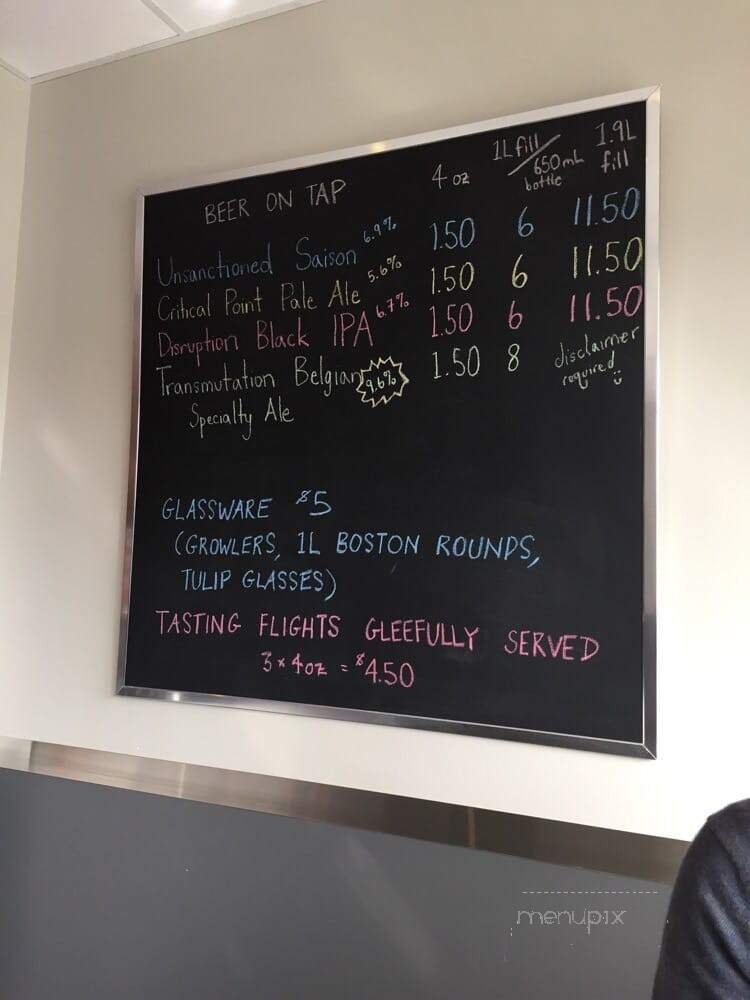 BEER ON TAP 4 oz 1L fill / 650mL bottle 1.9L fill
Unsanctioned Saison 6.9% 1.50 6 11.50
Critical Point Pale Ale 5.6% 1.50 6 11.50
Disruption Black IPA 6.7% 1.50 6 11.50
Transmutation Belgian 9.6% 1.50 8 disclaimer required
Specialty Ale
GLASSWARE $5
(GROWLERS, 1L BOSTON ROUNDS,
TULIP GLASSES)
TASTING FLIGHTS GLEEFULLY SERVED
3 x 4oz = $4.50
menupix